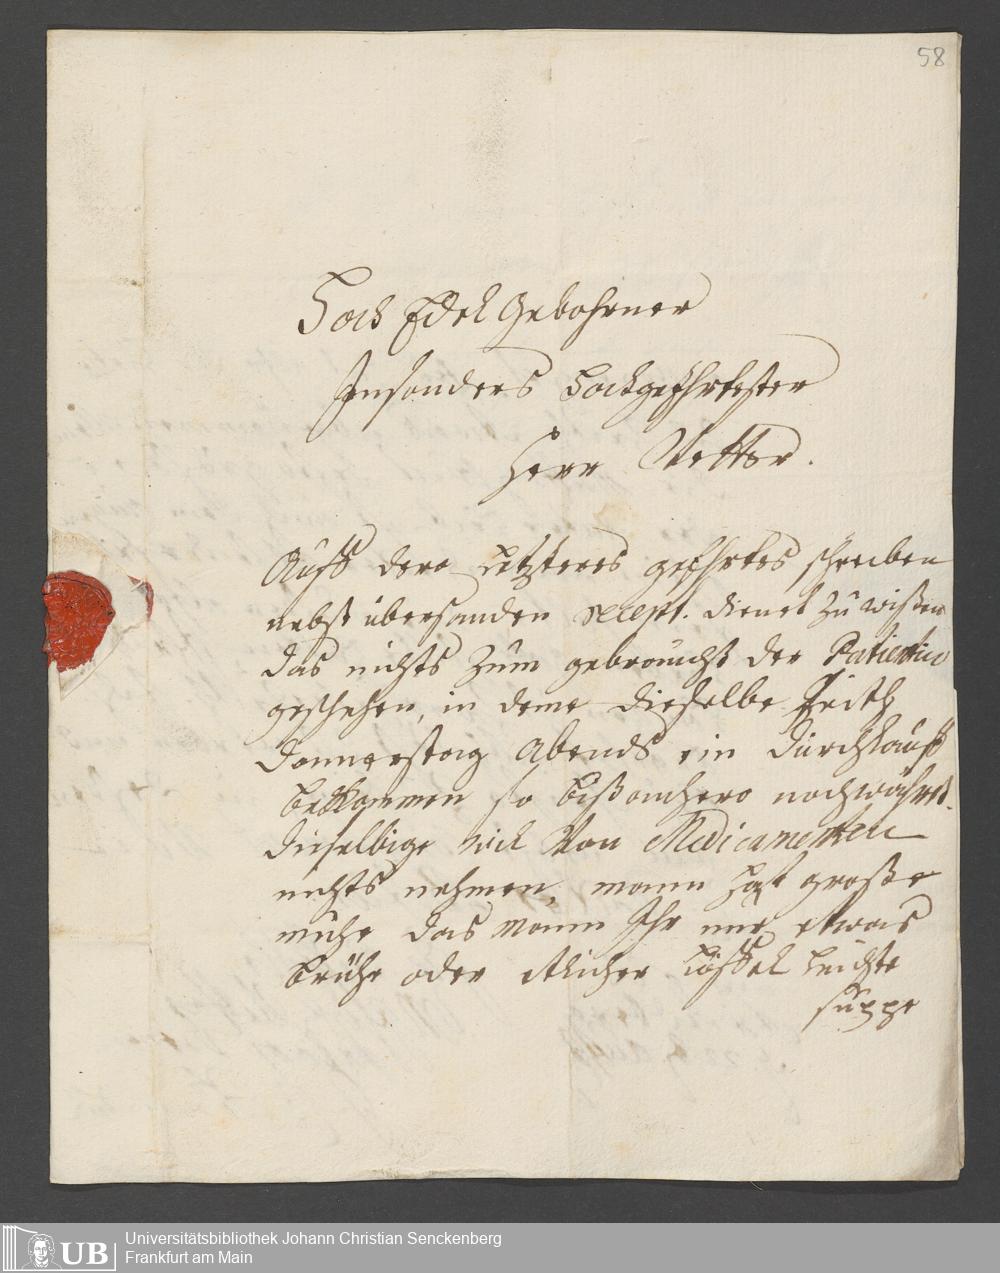 58
Hoch Edel Gebohrner
Insonders Hochgeehrtester
Herr Vetter.
Auff dero letzteres geehrtes schreiben
nebst übersanden recept. dienet zu wißen
das nichts zum gebraucht der Patientin
geschehen, in deme dieselbe
donnerstag Abends ein durchlauff
bekommen so bißanhero nochwähret.
dieselbige will Von Medicamenten
nichts nehmen, mann hat große
mühe das mann Ihr nur etwas
brühe oder etlicher löffel leichte
suppe
UB
Universitätsbibliothek Johann Christian Senckenberg
Frankfurt am Main